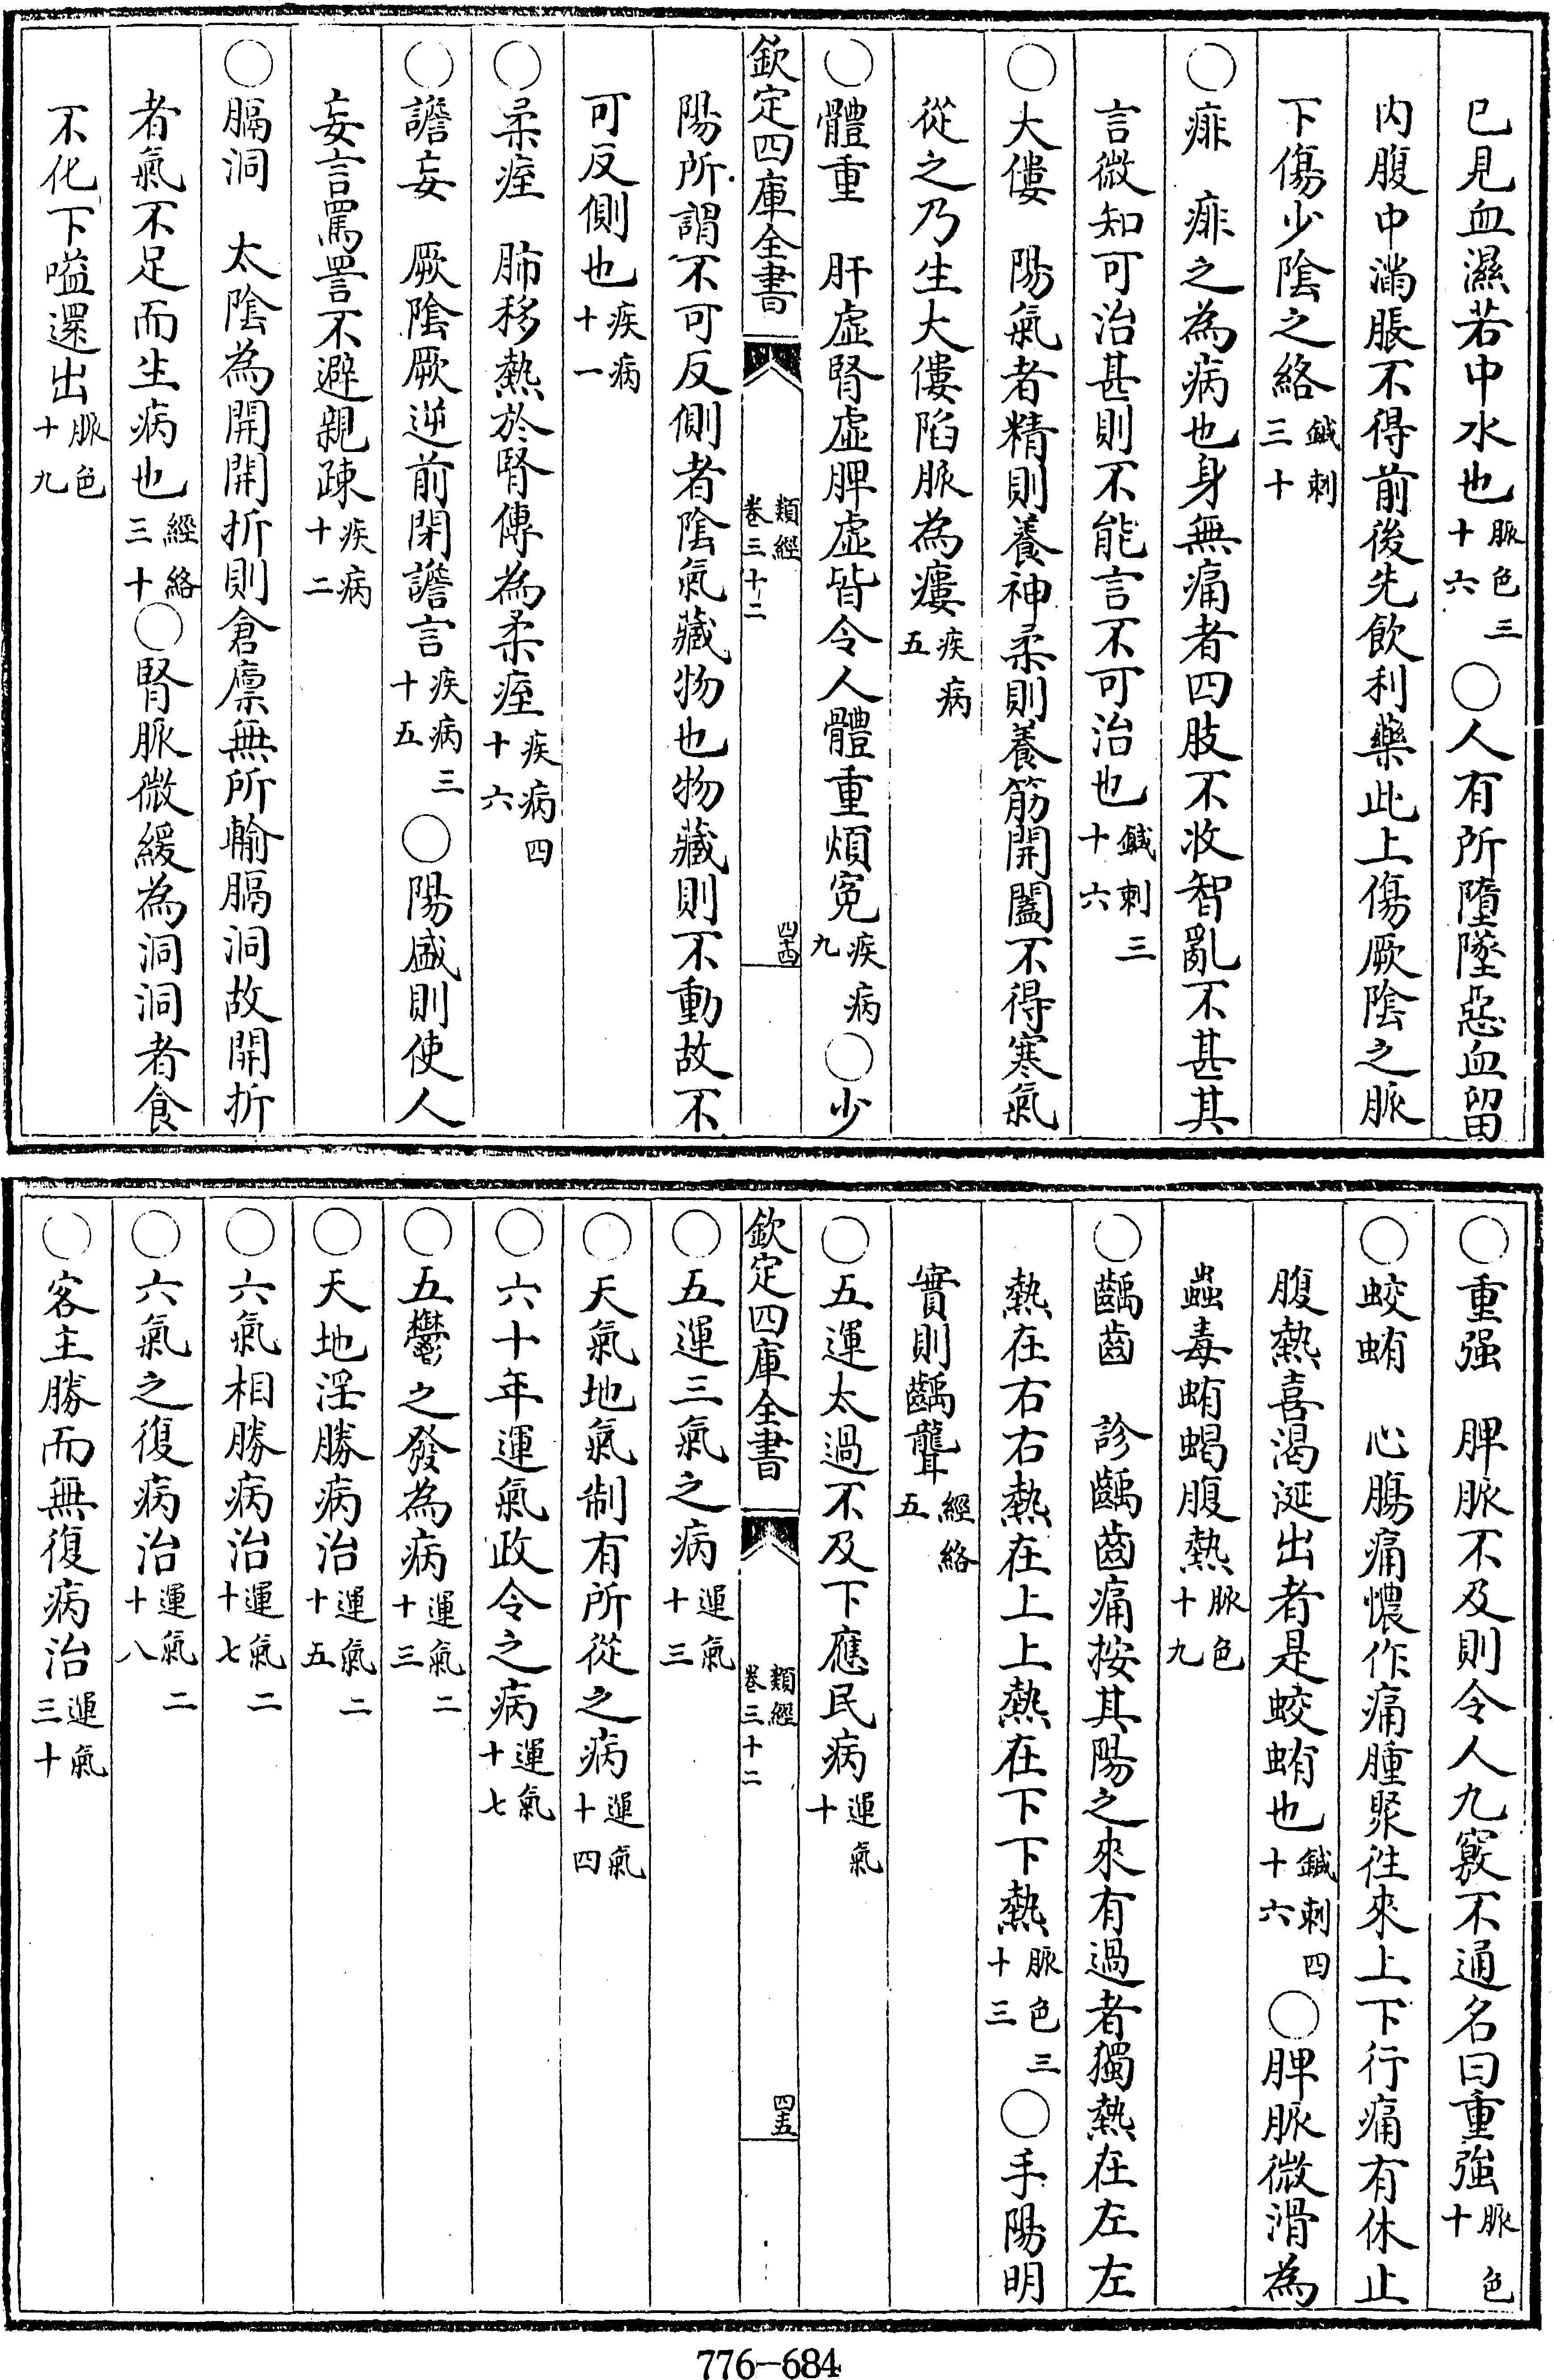 已見血濕若中水也脈色三十六○人有所墮墜惡血留
内腹中滿脹不得前後先飲利藥此上傷厥陰之脈
下傷少陰之絡鍼刺三十
○痱　痱之為病也身無痛者四肢不收智亂不甚其
言微知可治甚則不能言不可治也鍼刺三十六
○大僂　陽氣者精則養神柔則養筋開闔不得寒氣
從之乃生大僂陷脈為瘻疾病五
○體重　肝虛腎虛脾虛皆令人體重煩寃疾病九○少
欽定四庫全書　類經卷三十二　四十四
陽所謂不可反側者陰氣藏物也物藏則不動故不
可反側也疾病十一
○柔痓　肺移熱於腎傳為柔痓疾病四十六
○譫妄　厥陰厥逆前閉譫言疾病三十五○陽盛則使人
妄言罵詈不避親疎疾病十二
○膈洞　太陰為開開折則倉廪無所輸膈洞故開折
者氣不足而生病也經絡三十○腎脈微緩為洞洞者食
不化下嗌還出脈色十九
○重强　脾脈不及則令人九竅不通名曰重強脈色十
○蛟蛕　心腸痛憹作痛腫聚往來上下行痛有休止
腹熱喜渴涎出者是蛟蛕也鍼刺四十六○脾脈微滑為
蟲毒蛕蝎腹熱脈色十九
○齲齒　診齲齒痛按其陽之來有過者獨熱在左左
熱在右右熱在上上熱在下下熱脈色三十三○手陽明
實則齲聾經絡五
○五運太過不及下應民病運氣十
欽定四庫全書　類經卷三十二　四十五
○五運三氣之病運氣十三
○天氣地氣制有所從之病運氣十四
○六十年運氣政令之病運氣十七
○五鬱之發為病運氣二十三
○天地淫勝病治運氣二十五
○六氣相勝病治運氣二十七
○六氣之復病治運氣二十八
○客主勝而無復病治運氣三十
776-684